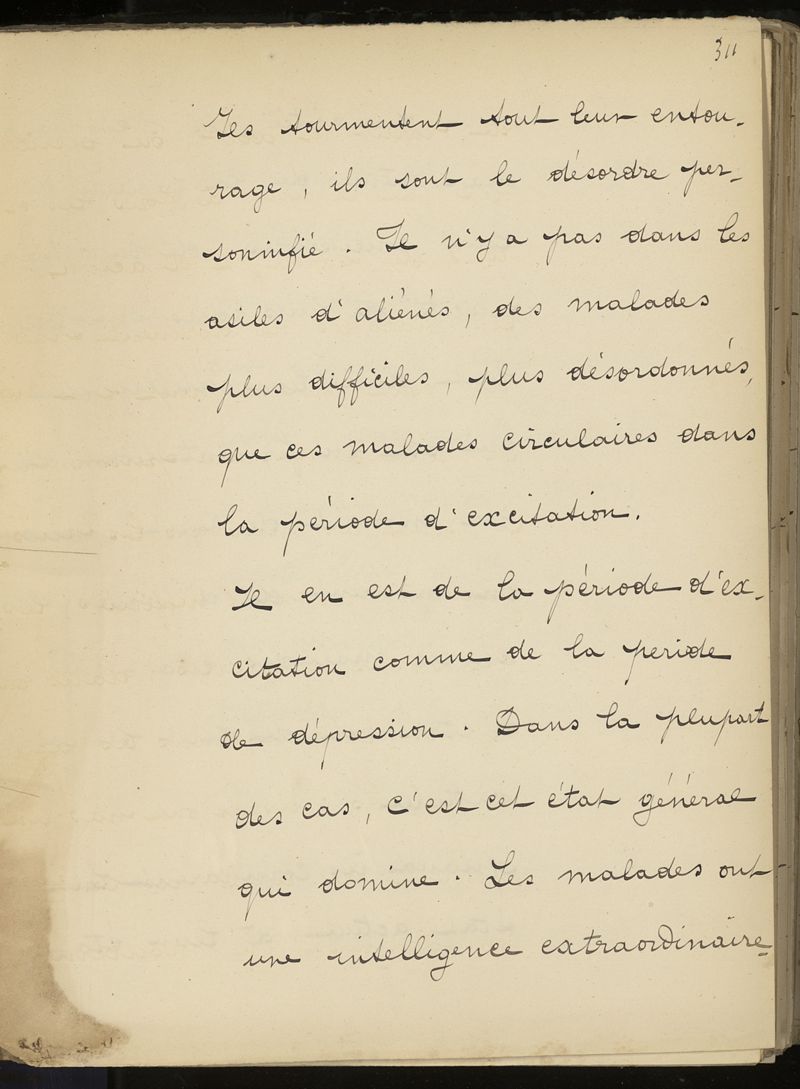 311
Ils tourmentent tout leur entou-
rage, ils sont le désordre per-
sonnifié. Il n'y a pas dans les
asiles d'aliénés, des malades
plus difficiles, plus désordonnés,
que ces malades circulaires dans
la période d'excitation.
Il en est de la période d'ex-
citation comme de la periode
de dépression. Dans la plupart
des cas, c'est cet état général
qui domine. Les malades ont
une intelligence extraordinaire-